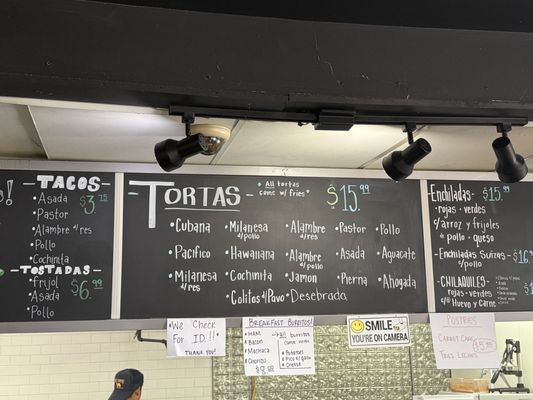 TACOS
Asada
Pastor
Alambre c/res
Pollo
Cochinita
$3.75
TOSTADAS
frijol
Asada
Pollo
$6.99
TORTAS
All tortas
come w/ fries
$15.99
Cubana
Milanesa
c/pollo
Alambre
c/res
Pastor
Pollo
Pacifico
Hawaiiana
Alambre
c/pollo
Asada
Aguacate
Milanesa
c/res
Cochinita
Jamon
Pierna
Ahogada
Colitos c/Pavo
Desebrada
Enchiladas
$15.99
rojas - verdes
c/arroz y frijoles
de pollo - queso
Enchiladas Suizas
c/pollo
CHILAQUILES
rojos-verdes
c/ Huevo y Carne
We Check
For I.D.!!
THANK YOU
BREAKFAST BURRITOS
Ham
Bacon
Machaca
Chorizo
$8.99
all burritos
come with
Potatoes
Pico d/ gallo
Cheese
SMILE
YOU'RE ON CAMERA
POSTRES
CARROT CAKE
$5.99
TRES LECHES